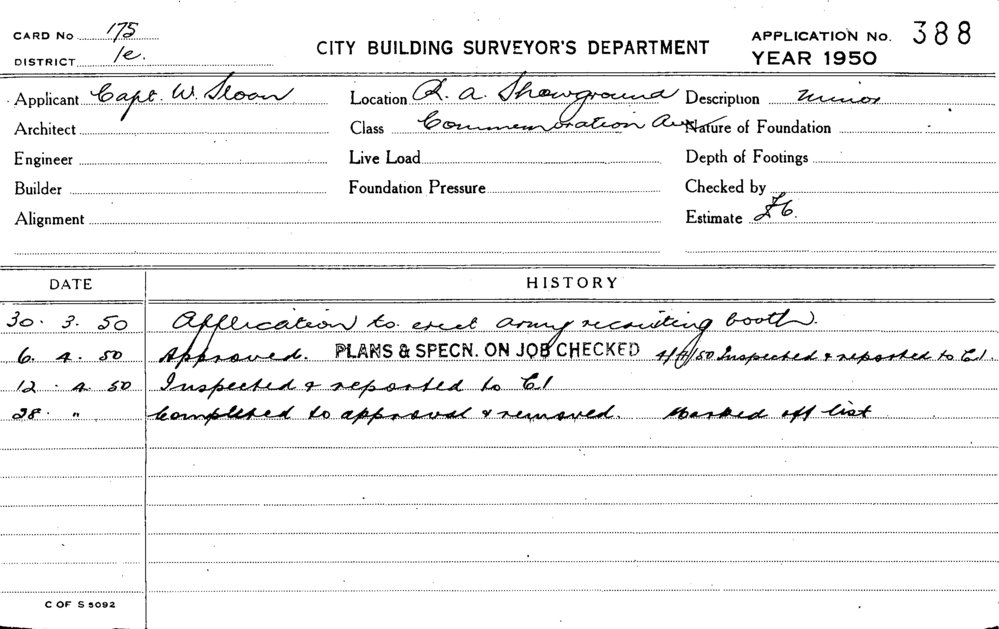 CARD No 175
DISTRICT 1e.
CITY BUILDING SURVEYOR'S DEPARTMENT
APPLICATION No. 388
YEAR 1950
Applicant Capt. W. Sloan Location R. A. Showground Description minor
Architect Class Commemoration Ave Nature of Foundation
Engineer Live Load Depth of Footings
Builder Foundation Pressure Checked by
Alignment Estimate £6.
DATE HISTORY
30. 3. 50 Application to erect army recruiting booth.
6. 4. 50 Approved. PLANS & SPECN. ON JOB CHECKED Inspected & reported to C.I.
12. 4. 50 Inspected & reported to C.I
28. " Completed to approval & removed. Marked off list
C OF S 5092